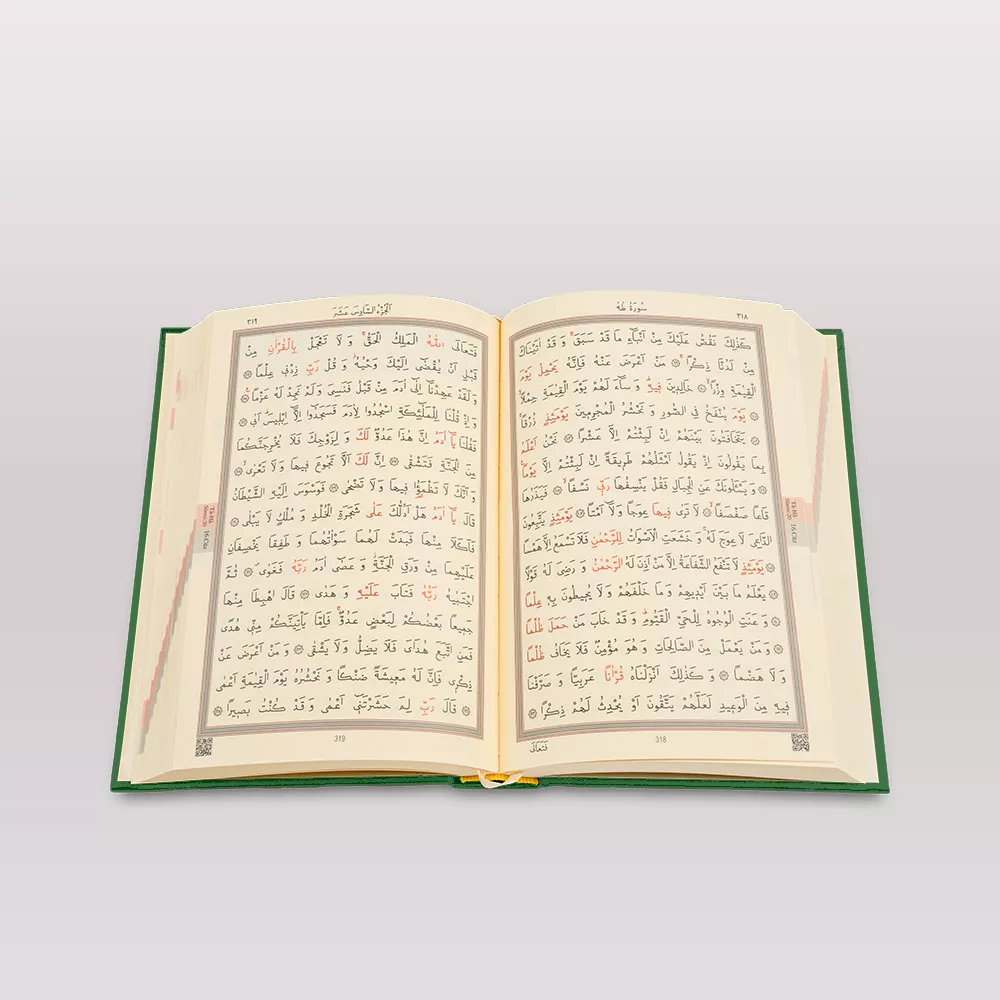 سُورَةُ طٰهٰ ٣١٨
كَذٰلِكَ نَقُصُّ عَلَيْكَ مِنْ اَنْبَٓاءِ مَا قَدْ سَبَقَۚ وَ قَدْ اٰتَيْنَاكَ
مِنْ لَدُنَّا ذِكْرًاۚ ﴿٩٩﴾ مَنْ اَعْرَضَ عَنْهُ فَاِنَّهُ يَحْمِلُ يَوْمَ
الْقِيٰمَةِ وِزْرًاۙ ﴿١٠٠﴾ خَالِدٖينَ فٖيهِۜ وَ سَٓاءَ لَهُمْ يَوْمَ الْقِيٰمَةِ حِمْلًاۙ
﴿١٠١﴾ يَوْمَ يُنْفَخُ فِي الصُّورِ وَ نَحْشُرُ الْمُجْرِمٖينَ يَوْمَئِذٍ زُرْقًاۚ
﴿١٠٢﴾ يَتَخَافَتُونَ بَيْنَهُمْ اِنْ لَبِثْتُمْ اِلَّا عَشْرًا ﴿١٠٣﴾ نَحْنُ اَعْلَمُ
بِمَا يَقُولُونَ اِذْ يَقُولُ اَمْثَلُهُمْ طَرٖيقَةً اِنْ لَبِثْتُمْ اِلَّا يَوْمًاۚ
﴿١٠٤﴾ وَ يَسْـَٔلُونَكَ عَنِ الْجِبَالِ فَقُلْ يَنْسِفُهَا رَبّٖي نَسْفًاۙ ﴿١٠٥﴾ فَيَذَرُهَا
قَاعًا صَفْصَفًاۙ ﴿١٠٦﴾ لَا تَرٰى فٖيهَا عِوَجًا وَ لَٓا اَمْتًاۜ ﴿١٠٧﴾ يَوْمَئِذٍ يَتَّبِعُونَ
الدَّاعِيَ لَا عِوَجَ لَهُۚ وَ خَشَعَتِ الْاَصْوَاتُ لِلرَّحْمٰنِ فَلَا تَسْمَعُ اِلَّا هَمْسًا
﴿١٠٨﴾ يَوْمَئِذٍ لَا تَنْفَعُ الشَّفَاعَةُ اِلَّا مَنْ اَذِنَ لَهُ الرَّحْمٰنُ وَ رَضِيَ لَهُ قَوْلًا
﴿١٠٩﴾ يَعْلَمُ مَا بَيْنَ اَيْدٖيهِمْ وَ مَا خَلْفَهُمْ وَ لَا يُحٖيطُونَ بِهٖ عِلْمًا
﴿١١٠﴾ وَ عَنَتِ الْوُجُوهُ لِلْحَيِّ الْقَيُّومِۜ وَ قَدْ خَابَ مَنْ حَمَلَ ظُلْمًا
﴿١١١﴾ وَ مَنْ يَعْمَلْ مِنَ الصَّالِحَاتِ وَ هُوَ مُؤْمِنٌ فَلَا يَخَافُ ظُلْمًا
وَ لَا هَضْمًا ﴿١١٢﴾ وَ كَذٰلِكَ اَنْزَلْنَاهُ قُرْاٰنًا عَرَبِيًّا وَ صَرَّفْنَا
فٖيهِ مِنَ الْوَعٖيدِ لَعَلَّهُمْ يَتَّقُونَ اَوْ يُحْدِثُ لَهُمْ ذِكْرًا ﴿١١٣﴾
318
فَتَعَالَى
اَلْجُزْءُ السَّادِسَ عَشَرَ ٣١٩
فَتَعَالَى اللّٰهُ الْمَلِكُ الْحَقُّۚ وَ لَا تَعْجَلْ بِالْقُرْاٰنِ مِنْ
قَبْلِ اَنْ يُقْضٰٓى اِلَيْكَ وَحْيُهُۘ وَ قُلْ رَبِّ زِدْنٖي عِلْمًا ﴿١١٤﴾
وَ لَقَدْ عَهِدْنَٓا اِلٰٓى اٰدَمَ مِنْ قَبْلُ فَنَسِيَ وَ لَمْ نَجِدْ لَهُ عَزْمًا۟ ﴿١١٥﴾
وَ اِذْ قُلْنَا لِلْمَلٰٓئِكَةِ اسْجُدُوا لِاٰدَمَ فَسَجَدُٓوا اِلَّٓا اِبْلٖيسَۜ اَبٰى ﴿١١٦﴾
فَقُلْنَا يَٓا اٰدَمُ اِنَّ هٰذَا عَدُوٌّ لَكَ وَ لِزَوْجِكَ فَلَا يُخْرِجَنَّكُمَا
مِنَ الْجَنَّةِ فَتَشْقٰى ﴿١١٧﴾ اِنَّ لَكَ اَلَّا تَجُوعَ فٖيهَا وَ لَا تَعْرٰىۙ ﴿١١٨﴾
وَ اَنَّكَ لَا تَظْمَؤُ۬ا فٖيهَا وَ لَا تَضْحٰى ﴿١١٩﴾ فَوَسْوَسَ اِلَيْهِ الشَّيْطَانُ
قَالَ يَٓا اٰدَمُ هَلْ اَدُلُّكَ عَلٰى شَجَرَةِ الْخُلْدِ وَ مُلْكٍ لَا يَبْلٰى ﴿١٢٠﴾
فَاَكَلَا مِنْهَا فَبَدَتْ لَهُمَا سَوْاٰتُهُمَا وَ طَفِقَا يَخْصِفَانِ
عَلَيْهِمَا مِنْ وَرَقِ الْجَنَّةِۘ وَ عَصٰٓى اٰدَمُ رَبَّهُ فَغَوٰىۖ ﴿١٢١﴾ ثُمَّ
اجْتَبٰيهُ رَبُّهُ فَتَابَ عَلَيْهِ وَ هَدٰى ﴿١٢٢﴾ قَالَ اهْبِطَا مِنْهَا
جَمٖيعًا بَعْضُكُمْ لِبَعْضٍ عَدُوٌّۚ فَاِمَّا يَأْتِيَنَّكُمْ مِنّٖي هُدًى
فَمَنِ اتَّبَعَ هُدَايَ فَلَا يَضِلُّ وَ لَا يَشْقٰى ﴿١٢٣﴾ وَ مَنْ اَعْرَضَ عَنْ
ذِكْرٖي فَاِنَّ لَهُ مَعٖيشَةً ضَنْكًا وَ نَحْشُرُهُ يَوْمَ الْقِيٰمَةِ اَعْمٰى
﴿١٢٤﴾ قَالَ رَبِّ لِمَ حَشَرْتَنٖٓي اَعْمٰى وَ قَدْ كُنْتُ بَصٖيرًا ﴿١٢٥﴾
319